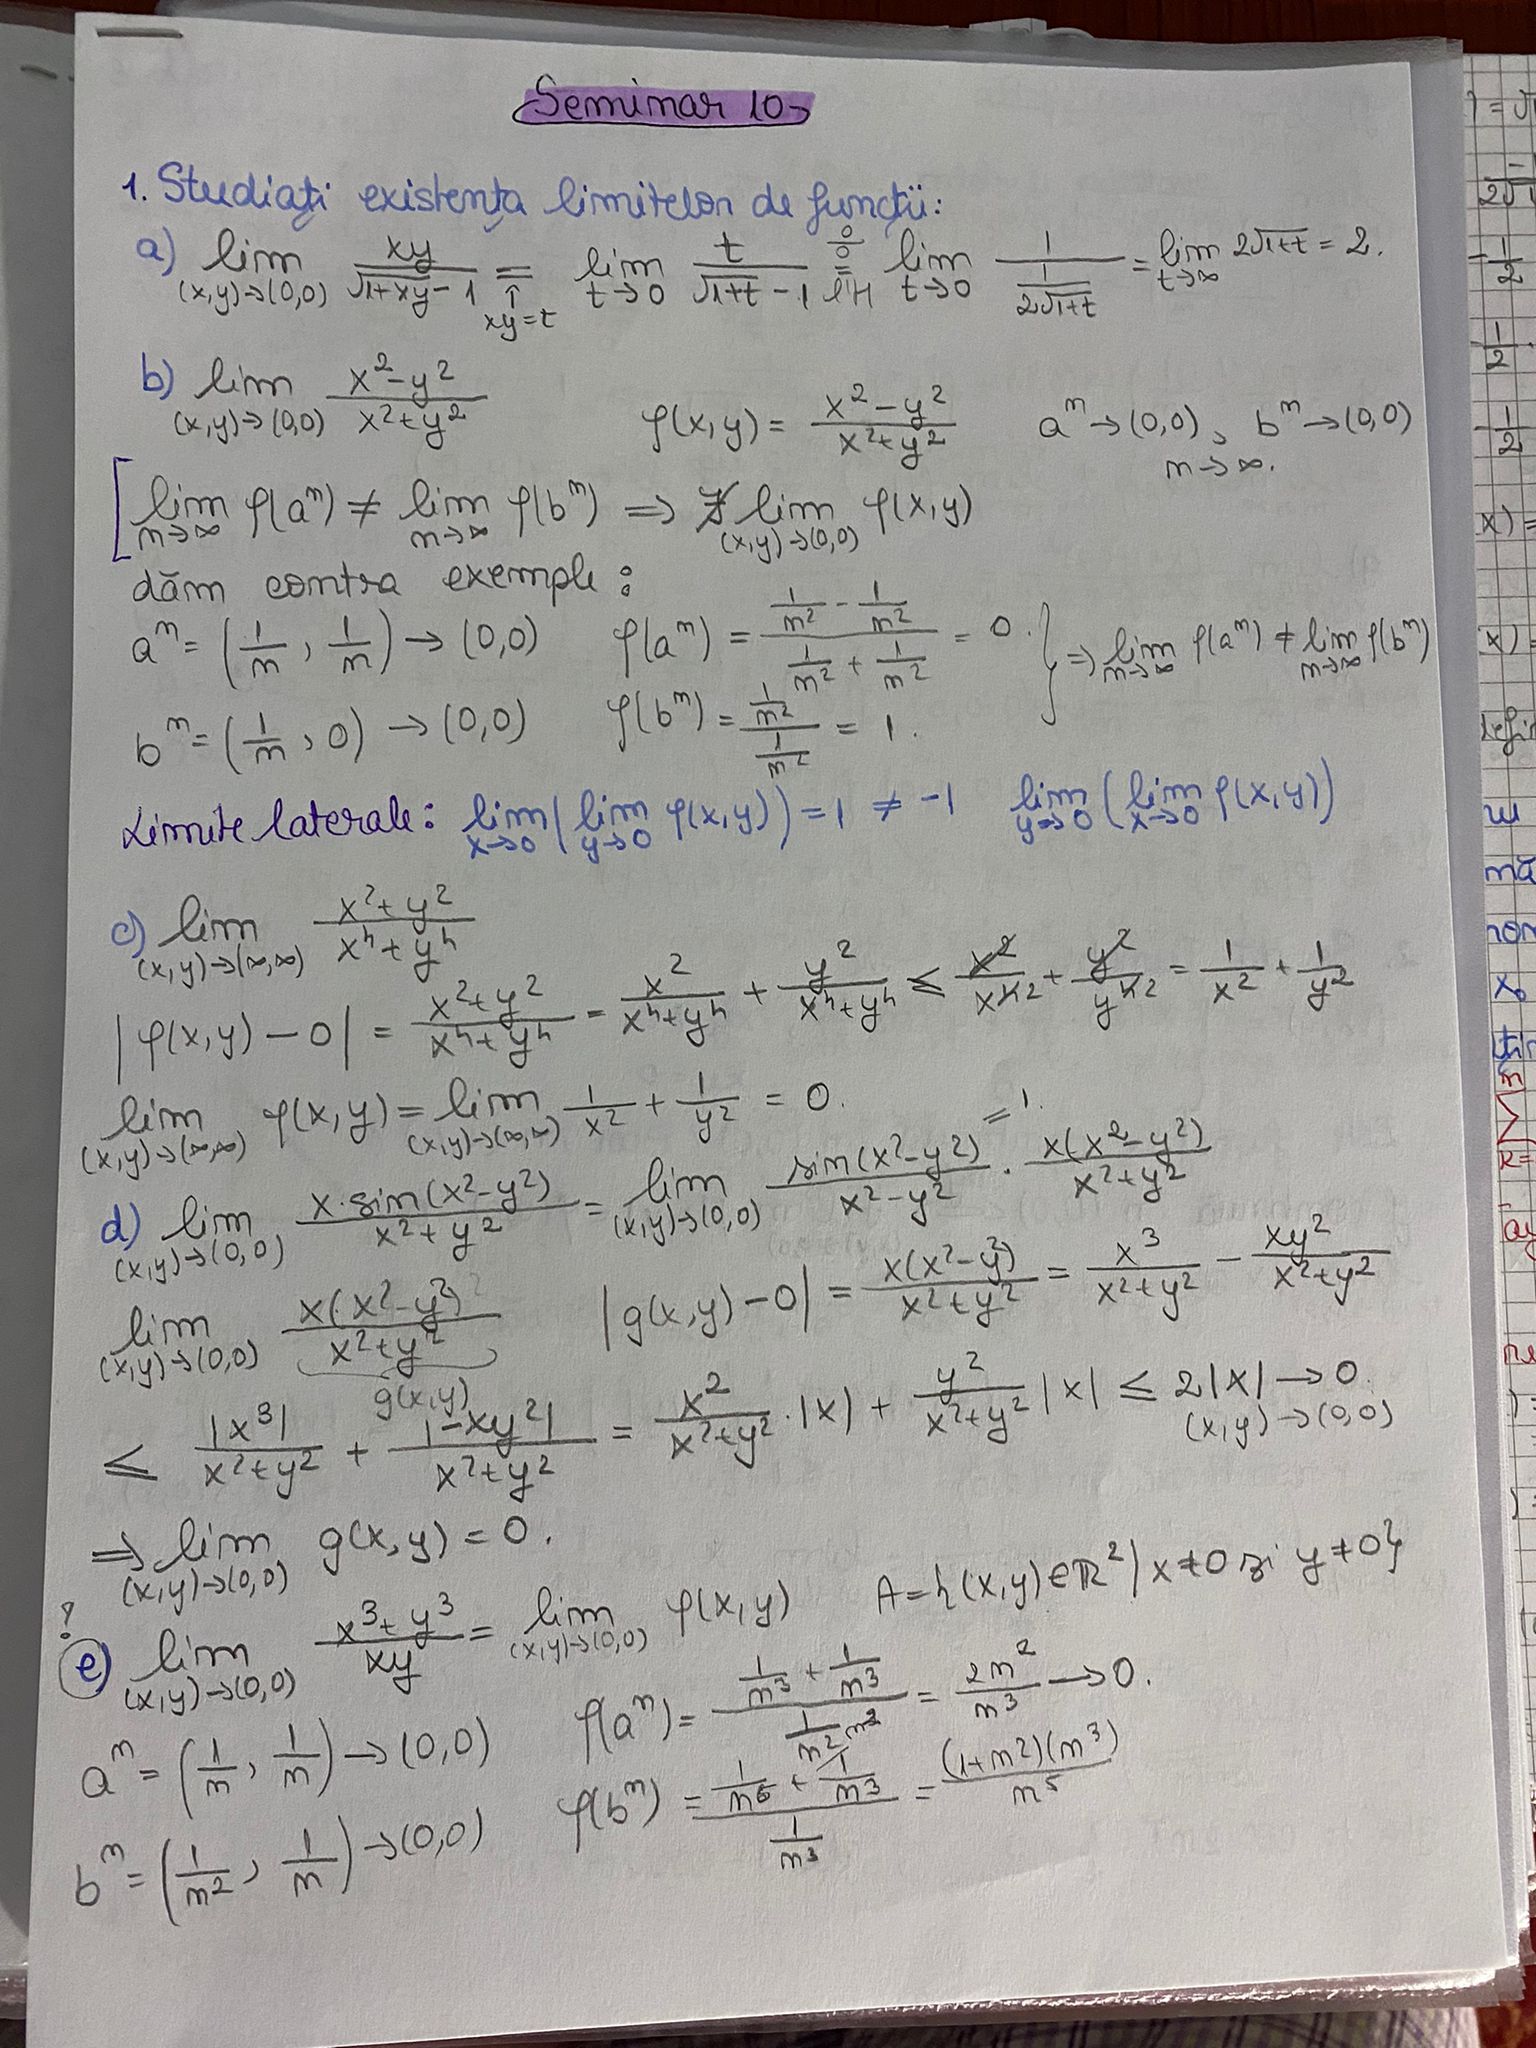 Seminar 10
1. Studiați existența limitelor de funcții:
a) lim (x,y)→(0,0) xy/(√(1+xy) - 1) = (xy=t) lim t→0 t/(√(1+t) - 1) = (0/0, l'H) lim t→0 1/(1/(2√(1+t))) = lim t→∞ 2√(1+t) = 2.
b) lim (x,y)→(0,0) (x²-y²)/(x²+y²) f(x,y) = (x²-y²)/(x²+y²) aⁿ→(0,0), bⁿ→(0,0) n→∞.
[lim n→∞ f(aⁿ) ≠ lim n→∞ f(bⁿ) ⇒ ∄ lim (x,y)→(0,0) f(x,y)
dăm contra exemple:
aⁿ = (1/n, 1/n) → (0,0) f(aⁿ) = (1/n² - 1/n²)/(1/n² + 1/n²) = 0. } ⇒ lim n→∞ f(aⁿ) ≠ lim n→∞ f(bⁿ)
bⁿ = (1/n, 0) → (0,0) f(bⁿ) = (1/n²)/(1/n²) = 1.
Limite laterale: lim x→0 (lim y→0 f(x,y)) = 1 ≠ -1 lim y→0 (lim x→0 f(x,y))
c) lim (x,y)→(∞,∞) (x²+y²)/(x⁴+y⁴)
|f(x,y) - 0| = (x²+y²)/(x⁴+y⁴) = x²/(x⁴+y⁴) + y²/(x⁴+y⁴) ≤ x²/x⁴ ² + y²/y⁴ ² = 1/x² + 1/y²
lim (x,y)→(∞,∞) f(x,y) = lim (x,y)→(∞,∞) 1/x² + 1/y² = 0.
d) lim (x,y)→(0,0) x·sin(x²-y²)/(x²+y²) = lim (x,y)→(0,0) sin(x²-y²)/(x²-y²) =1. · x(x²-y²)/(x²+y²)
lim (x,y)→(0,0) x(x²-y²)/(x²+y²) g(x,y) |g(x,y) - 0| = x(x²-y²)/(x²+y²) = x³/(x²+y²) - xy²/(x²+y²)
≤ |x³|/(x²+y²) + |-xy²|/(x²+y²) = x²/(x²+y²) · |x| + y²/(x²+y²) |x| ≤ 2|x| → 0. (x,y)→(0,0)
⇒ lim (x,y)→(0,0) g(x,y) = 0.
? e) lim (x,y)→(0,0) (x³+y³)/xy = lim (x,y)→(0,0) f(x,y) A = {(x,y)∈ℝ² | x≠0 și y≠0}
aⁿ = (1/n, 1/n) → (0,0) f(aⁿ) = (1/n³ + 1/n³)/(1/n²) = 2n²/n³ → 0.
bⁿ = (1/n², 1/n) → (0,0) f(bⁿ) = (1/n⁶ + 1/n³)/(1/n³) = (1+n²)(n³)/n⁵